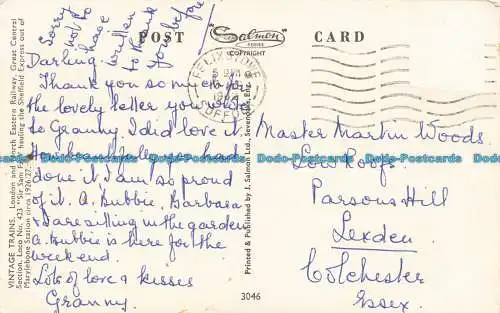 Sorry
not to
have
written
to thank
you before
POST CARD
Salmon
SERIES
COPYRIGHT
FELIXSTOWE
SUFFOLK
Darling.
Thank you so much for
the lovely letter you wrote
to Granny. I did love it
done it. I am so proud
of it. A. Bubbie, Barbara
I are sitting in the garden
A. Bubbie is here for the
weekend.
Lots of love & kisses
Granny.
Master Martin Woods
Low Roofs
Parsons Hill
Lexden
Colchester
Essex.
VINTAGE TRAINS. London and North Eastern Railway, Great Central
Section. Loco No. 423 "Sir Sam Fay" hauling the Sheffield Express out of
Marylebone Station circa 1926/27.
Printed & Published by J. Salmon Ltd., Sevenoaks, Eng.
3046
Dodo-Postcards Dodo-Postcards Dodo-Postcards Dodo-Postcards